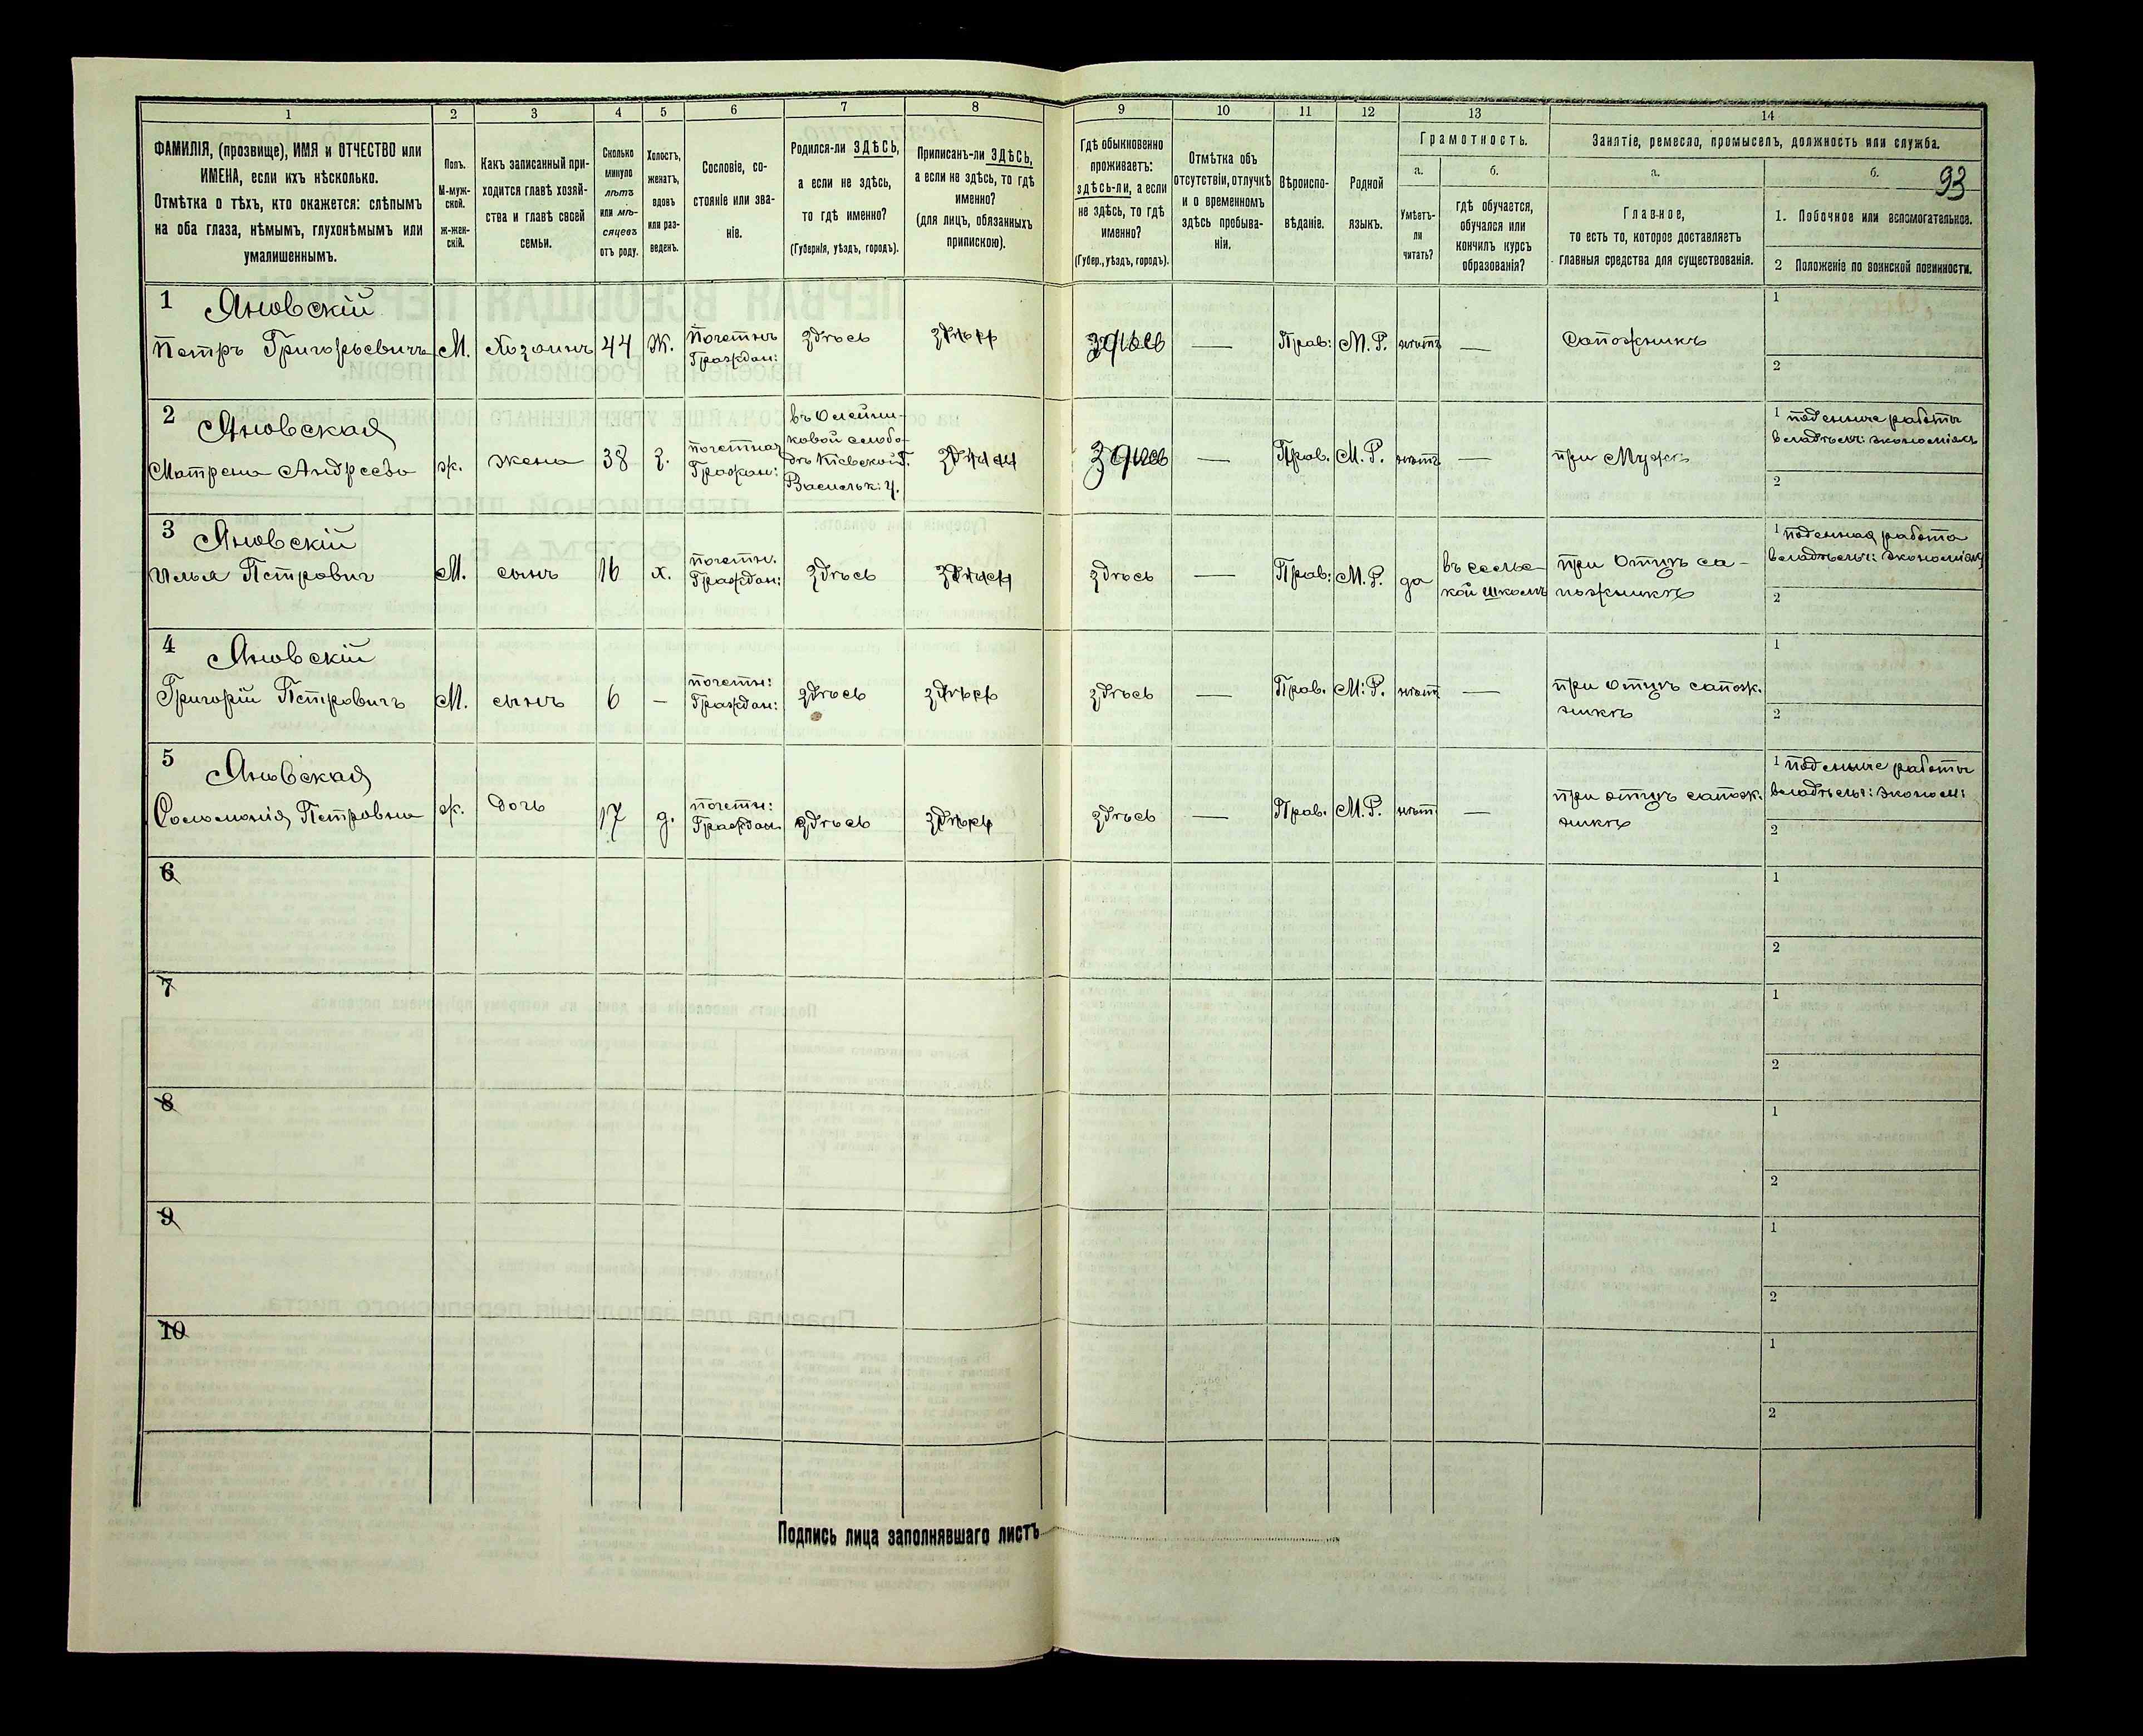 1 2 3 4 5 6 7 8 9 10 11 12 13 14
ФАМИЛІЯ, (прозвище), ИМЯ и ОТЧЕСТВО или
ИМЕНА, если ихъ нѣсколько.
Отмѣтка о тѣхъ, кто окажется: слѣпымъ
на оба глаза, нѣмымъ, глухонѣмымъ или
умалишеннымъ.
Полъ.
М-муж-
ской.
ж-жен-
скій.
Какъ записанный при-
ходится главѣ хозяй-
ства и главѣ своей
семьи.
Сколько
минуло
лѣтъ
или мѣ-
сяцевъ
отъ роду.
Холостъ,
женатъ,
вдовъ
или раз-
веденъ.
Сословіе, со-
стояніе или зва-
ніе.
Родился-ли ЗДѢСЬ,
а если не здѣсь,
то гдѣ именно?
(Губернія, уѣздъ, городъ).
Приписанъ-ли ЗДѢСЬ,
а если не здѣсь, то гдѣ
именно?
(для лицъ, обязанныхъ
припискою).
Гдѣ обыкновенно
проживаетъ:
здѣсь-ли, а если
не здѣсь, то гдѣ
именно?
(Губер., уѣздъ, городъ).
Отмѣтка объ
отсутствіи, отлучкѣ
и о временномъ
здѣсь пребыва-
ніи.
Вѣроиспо-
вѣданіе.
Родной
языкъ.
Грамотность.
а.
Умѣетъ-
ли
читать?
б.
гдѣ обучается,
обучался или
кончилъ курсъ
образованія?
Занятіе, ремесло, промыселъ, должность или служба.
а.
Главное,
то есть то, которое доставляетъ
главныя средства для существованія.
б.
93
1. Побочное или вспомогательное.
2 Положеніе по воинской повинности.
1 Яновскій
Петръ Григорьевичъ М. Хозяинъ 44 Ж. Почетнъ
Граждан: здѣсь здѣсь здѣсь — Прав: М. Р. нѣтъ — Сапожникъ
1
2
2 Яновская
Матрена Андреева ж. жена 38 з. почетная
Граждан: въ Олейни-
ковой слобо-
дѣ Кіевской Г.
Васильк: у. здѣсь здѣсь — Прав. М. Р. нѣтъ — при Мужѣ
1 поденные работы
владѣльч: экономіяхъ
2
3 Яновскій
Илья Петрович М. сынъ 16 х. почетн.
Граждан: здѣсь здѣсь здѣсь — Прав: М. Р. да въ сельс
кой школѣ при Отцѣ са-
пожникѣ
1 поденная работа
владѣльч: экономіяхъ
2
4 Яновскій
Григорій Петровичъ М. сынъ 6 — почетн:
Граждан: здѣсь здѣсь здѣсь — Прав. М. Р. нѣтъ — при отцѣ сапож.
никѣ
1
2
5 Яновская
Соломонія Петровна ж. дочь 17 д. почетн:
Граждан здѣсь здѣсь здѣсь — Прав. М. Р. нѣтъ — при отцѣ сапож.
никѣ
1 поденные работы
владѣльч: эконом:
2
6
1
2
7
1
2
8
1
2
9
1
2
10
1
2
Подпись лица заполнявшаго листъ